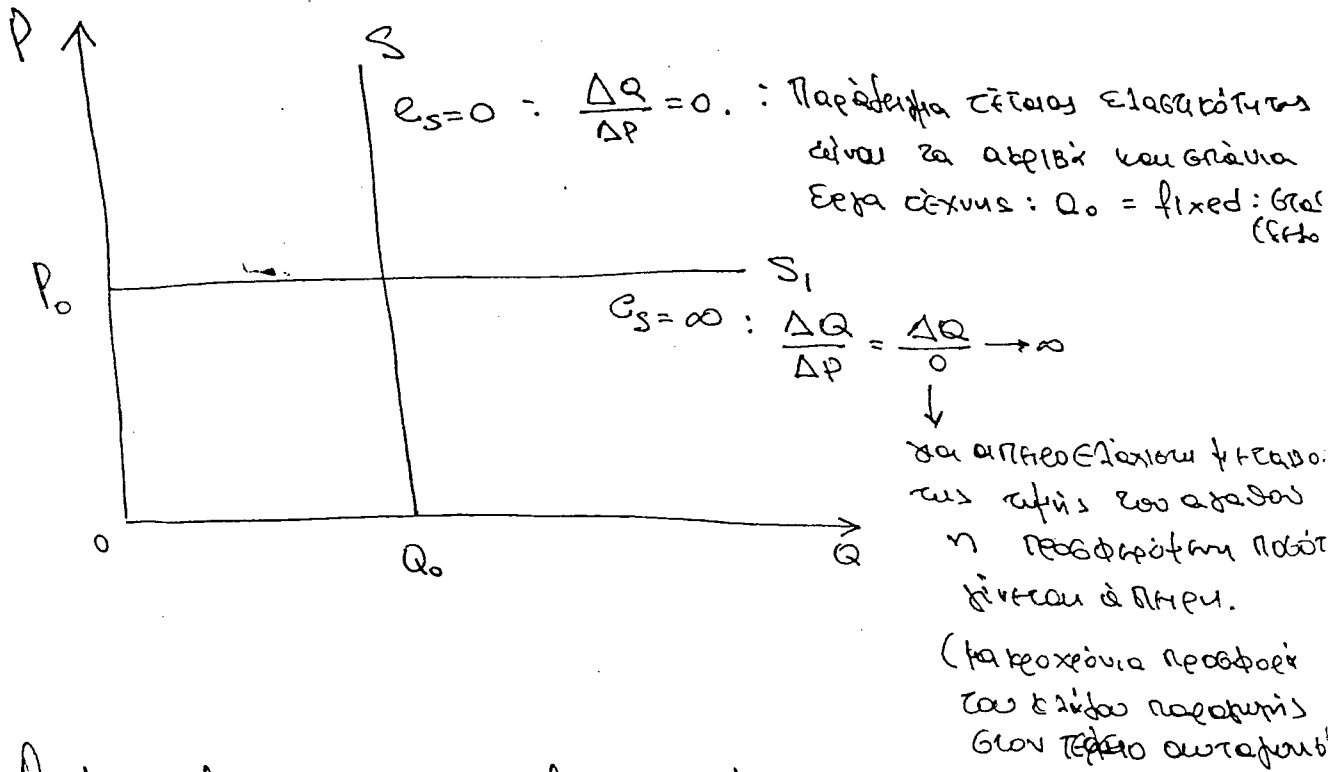 P
S
e_S=0 : ΔQ/ΔP = 0. : Παράδειγμα τέτοιας ελαστικότητας
είναι τα ακριβά και σπάνια
έργα τέχνης : Q₀ = fixed :
P₀
S₁
e_S = ∞ : ΔQ/ΔP = ΔQ/0 → ∞
↓
για απειροελάχιστη
της τιμής του αγαθού
η προσφερόμενη
γίνεται άπειρη.
0
Q₀
Q
(μακροχρόνια προσφορά
του κλάδου παραγωγής
στον τέλειο